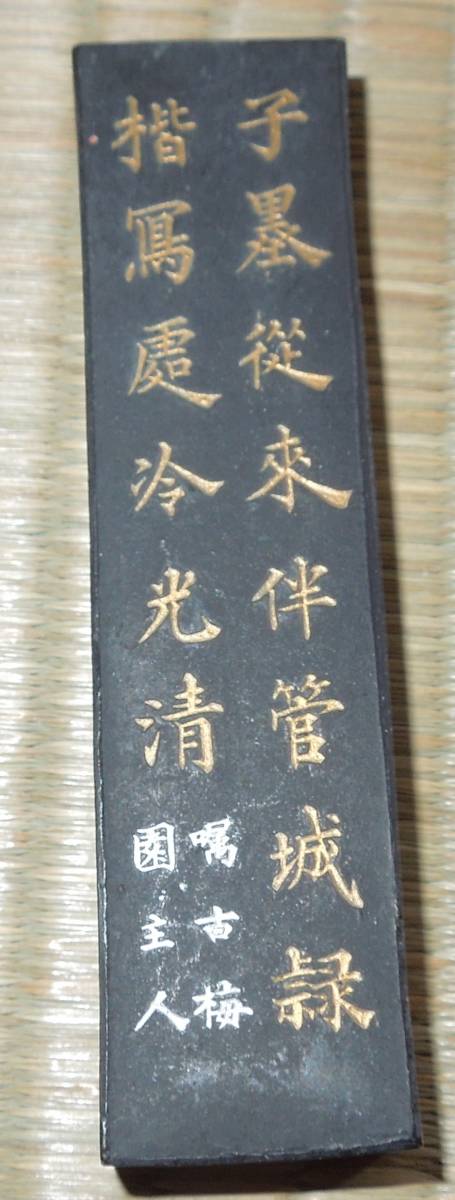 子墨從來伴管城隷
楷寫處冷光清
嘱古梅
園主人